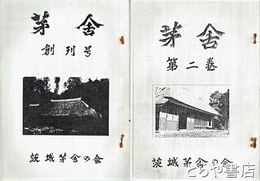 茅舎
創刊号
茨城茅舎の会
茅舎
第二巻
茨城茅舎の会
とらや書店